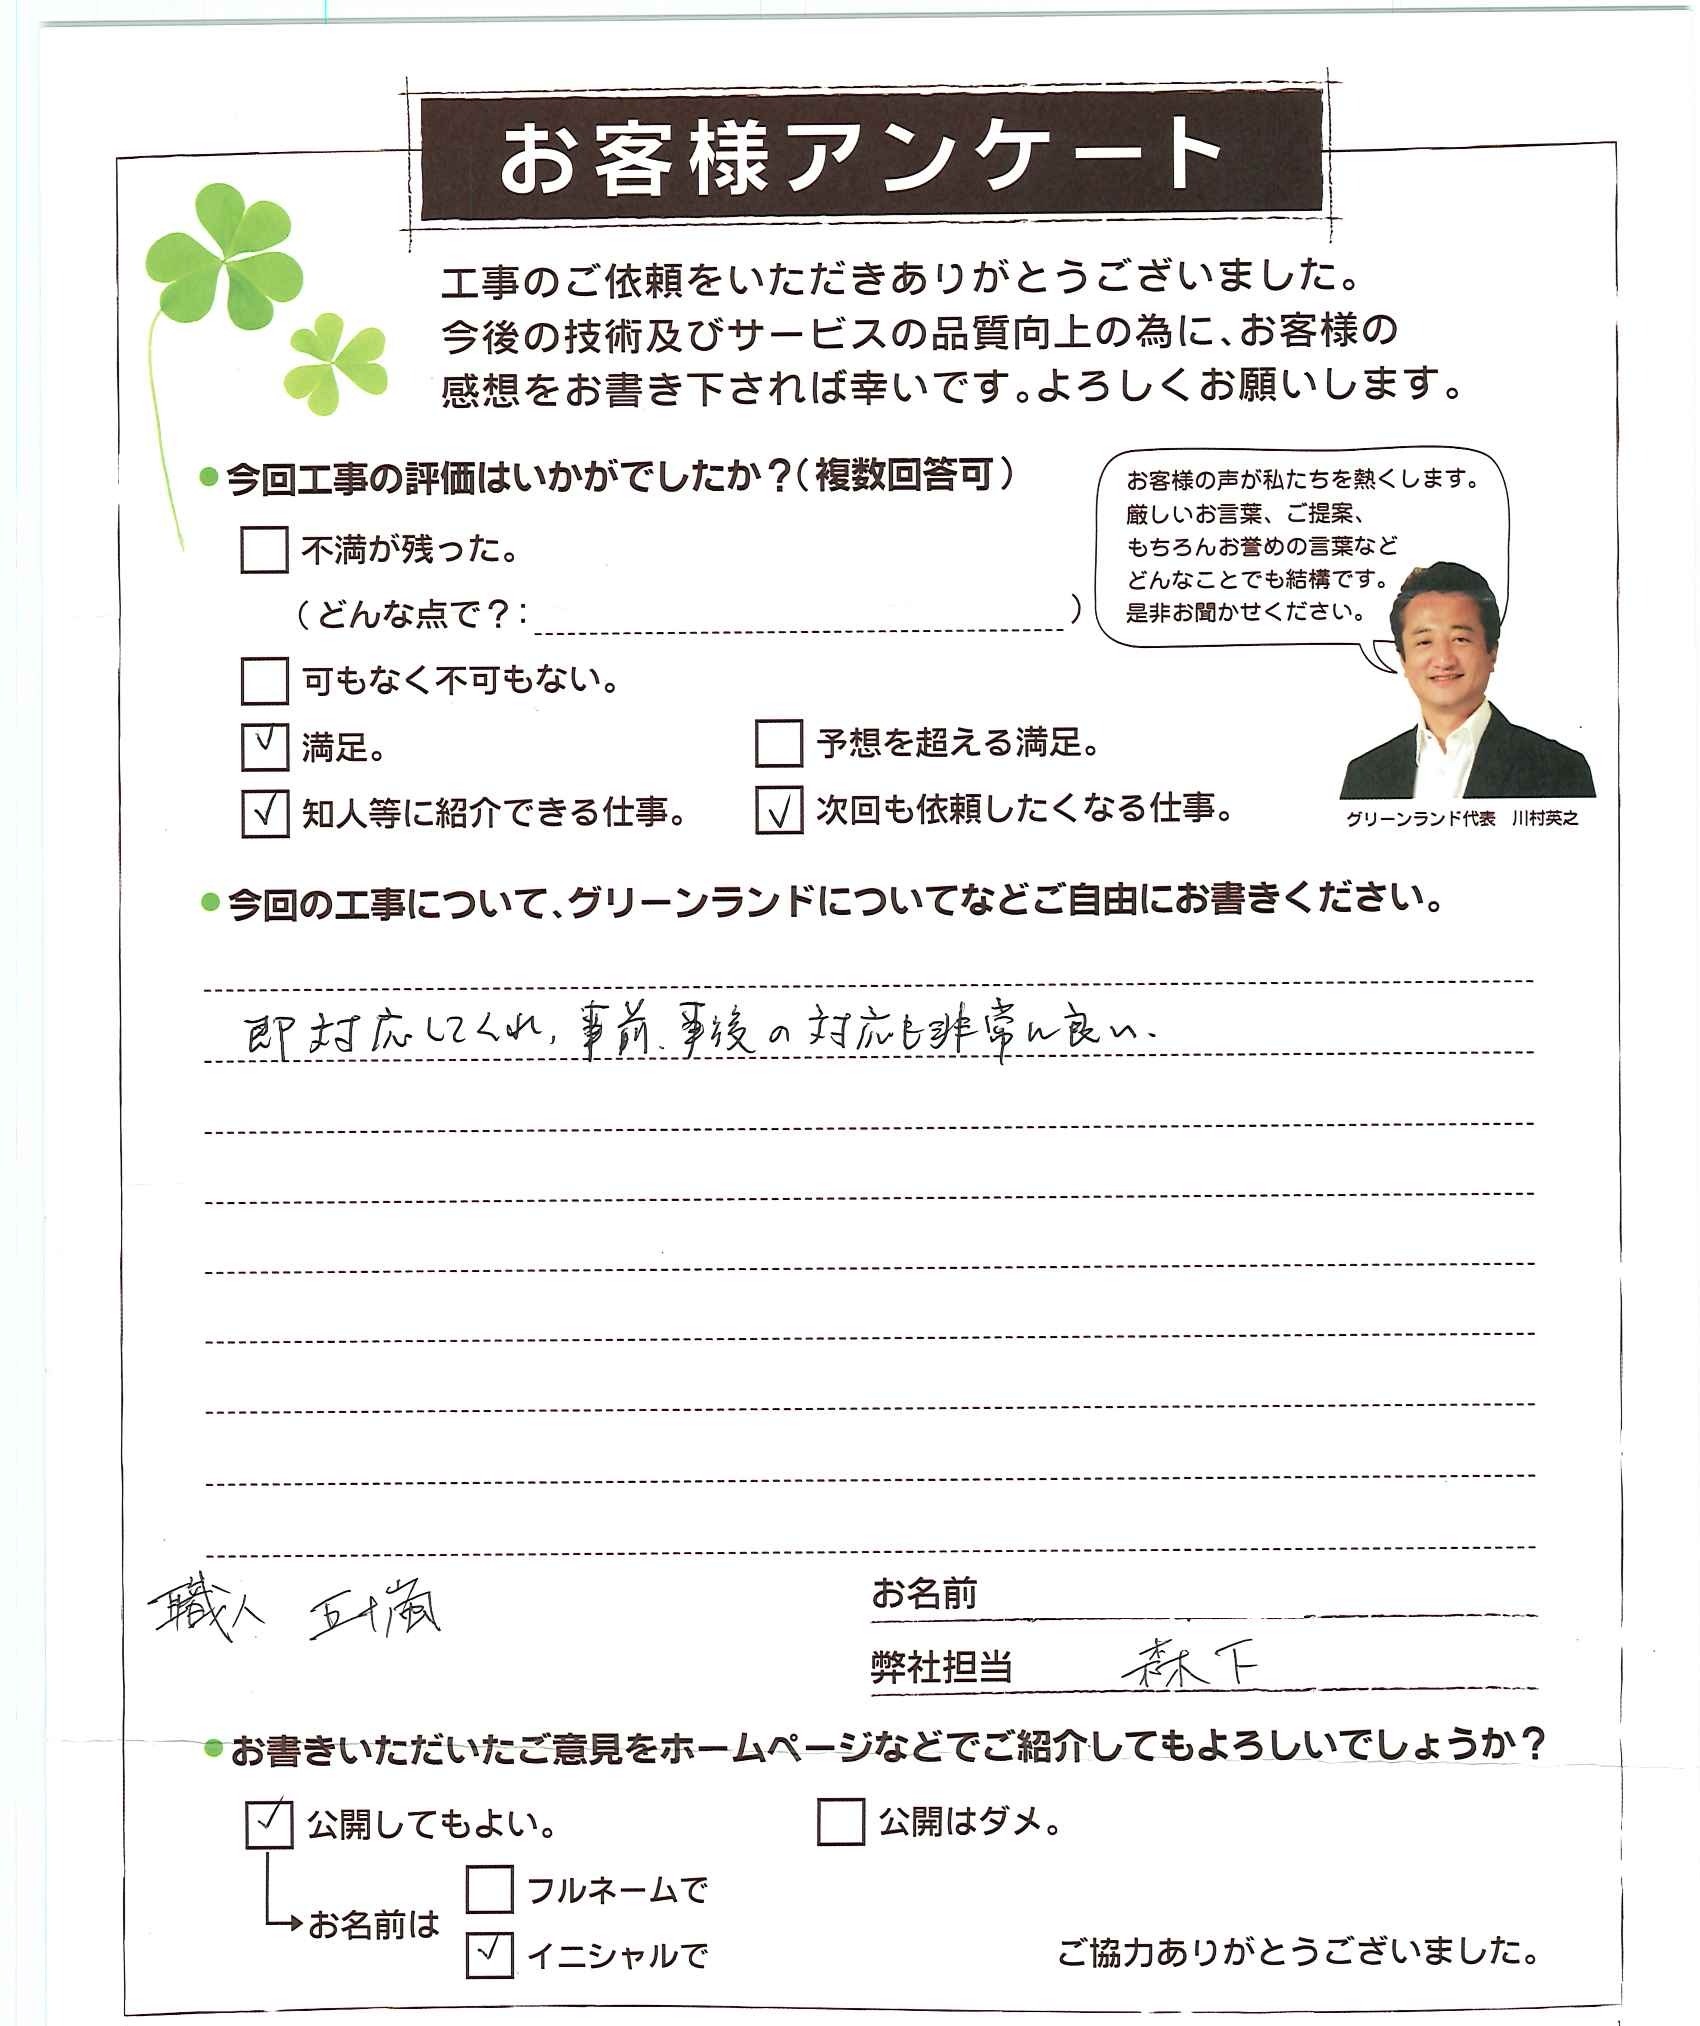 お客様アンケート
工事のご依頼をいただきありがとうございました。
今後の技術及びサービスの品質向上の為に、お客様の
感想をお書き下されば幸いです。よろしくお願いします。
●今回工事の評価はいかがでしたか?(複数回答可)
不満が残った。
(どんな点で?: )
可もなく不可もない。
満足。
予想を超える満足。
知人等に紹介できる仕事。
次回も依頼したくなる仕事。
お客様の声が私たちを熱くします。
厳しいお言葉、ご提案、
もちろんお誉めの言葉など
どんなことでも結構です。
是非お聞かせください。
グリーンランド代表 川村英之
●今回の工事について、グリーンランドについてなどご自由にお書きください。
即対応してくれ、事前、事後の対応も非常に良い。
職人 五十嵐
お名前
弊社担当 森下
●お書きいただいたご意見をホームページなどでご紹介してもよろしいでしょうか?
公開してもよい。
公開はダメ。
お名前は
フルネームで
イニシャルで
ご協力ありがとうございました。